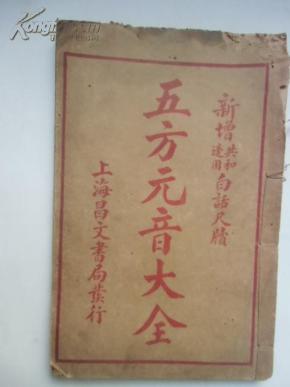 新增共和适用白話尺牘
五方元音大全
上海昌文書局發行